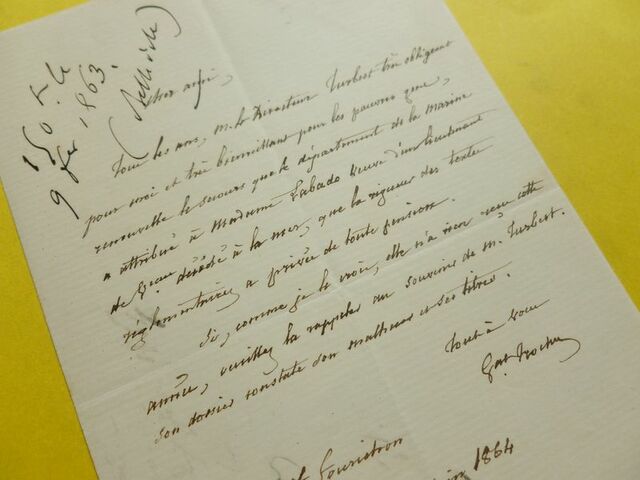 150 f. le
9 fév 1863.
Cher ami,
Tous les ans, M. le Directeur Turbert très obligeant
pour moi et très bienveillant pour les pauvres gens,
renouvelle le secours que le département de la Marine
a attribué à Madame Labado veuve d'un lieutenant
de Veau décédé à la mer, que la rigueur des textes
réglementaires a privée de toute pension.
Si, comme je le crois, elle n'a rien reçu cette
année, veuillez la rappeler au souvenir de M. Turbert.
Son dossier constate son malheur et ses titres.
Tout à vous
Gal Trochu
1864